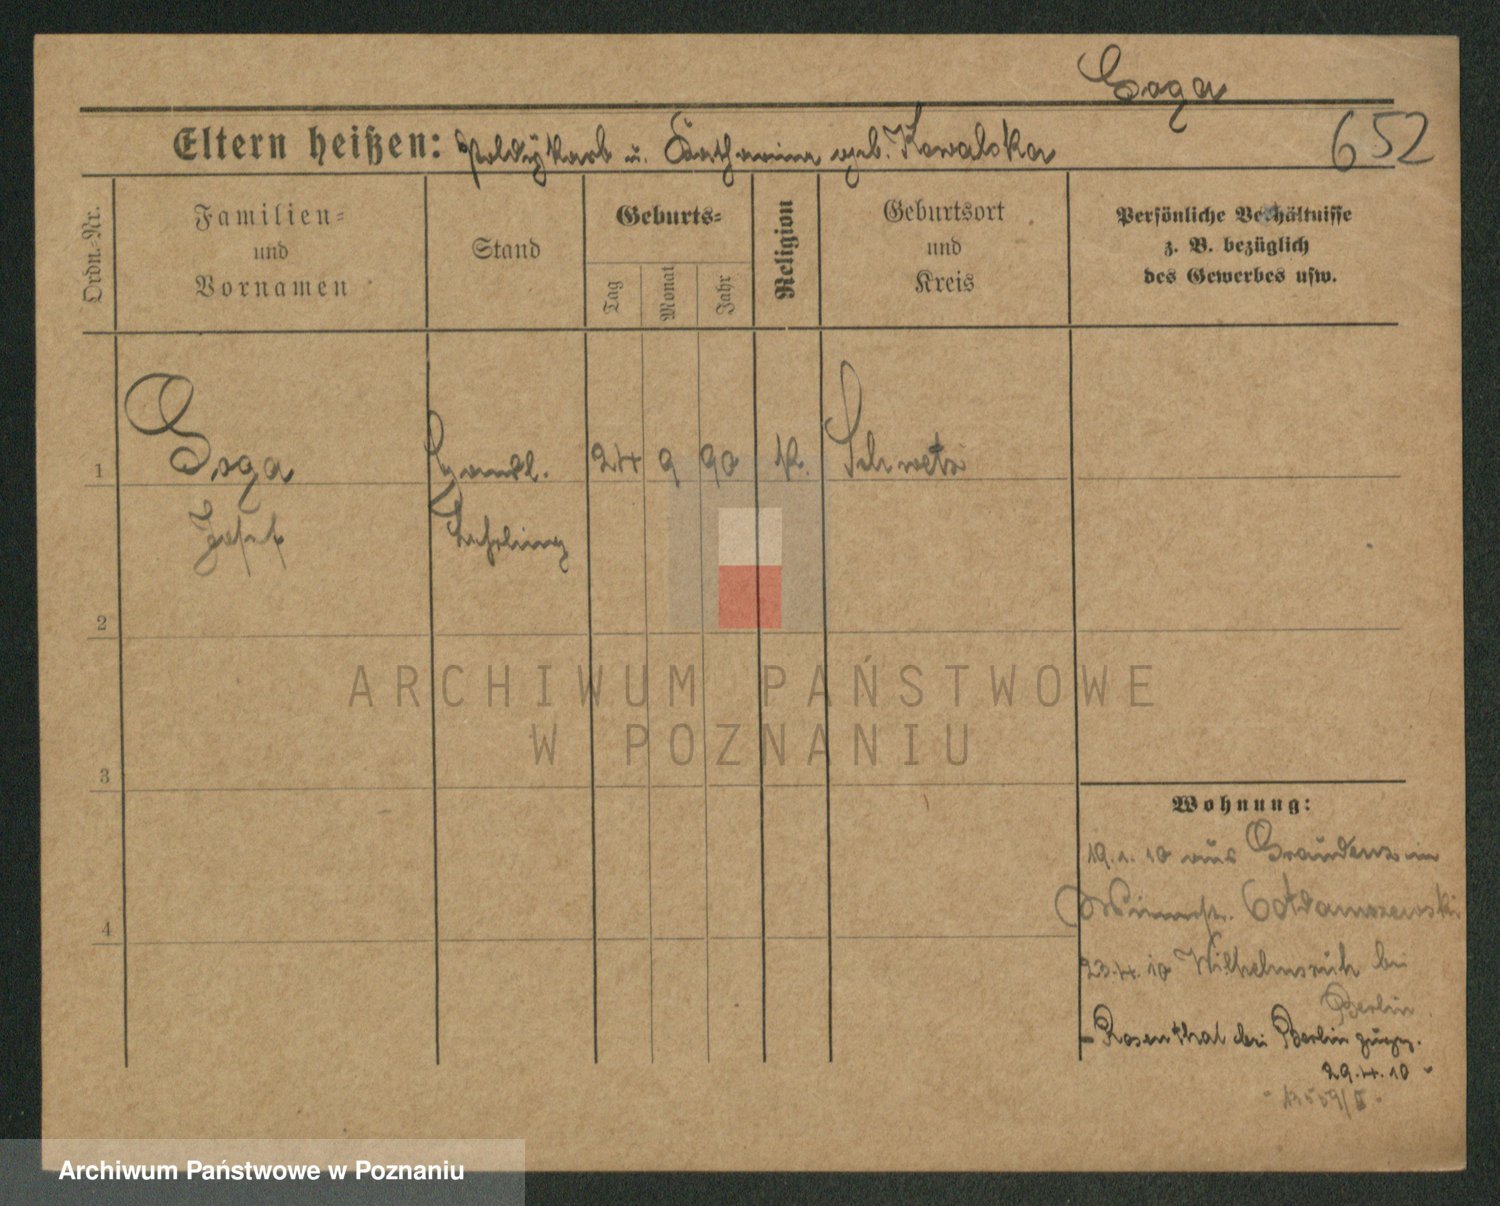 Goga
652
Eltern heißen: Polykarb u. Katharina geb. Kowalska
Ordn.-Nr.
Familien-
und
Vornamen
Stand
Geburts-
Tag
Monat
Jahr
Religion
Geburtsort
und
Kreis
Persönliche Verhältnisse
z. B. bezüglich
des Gewerbes usw.
1
Goga
Handl.
24
9
90
K.
Schwetz
Josef
Lehrling
2
ARCHIWUM PAŃSTWOWE
W POZNANIU
3
Wohnung:
19.1.10 aus Graudenz in
4
23.4.10 Wilhelmsruh bei
Berlin.
- Rosenthal bei Berlin zugez.
29.4.10 -
Archiwum Państwowe w Poznaniu